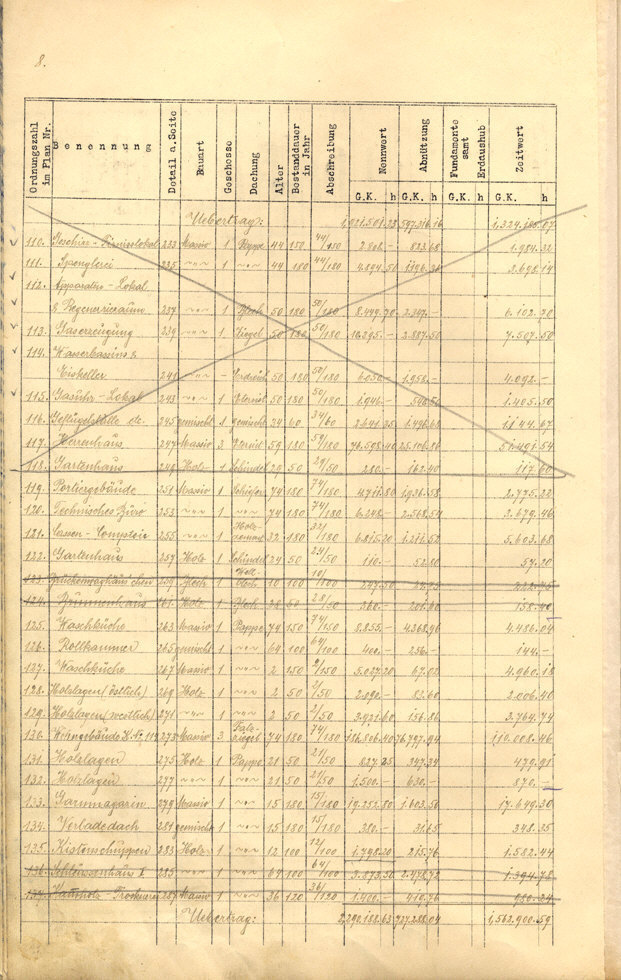 8.
Ordnungszahl in Plan Nr. Benennung Detail a.Seite Bauart Geschosse Dachung Alter Bestanddauer in Jahr Abschreibung Nennwert Abnützung Fundamente samt Erdaushub Zeitwert
G.K. h G.K. h G.K. h
Uebertrag: 1,921.501.23 597.316.16 1,324.185.07
110. 233 Massiv 1 Pappe 44 150 44/150 2.808.- 823.68 1.984.32
111. Spenglerei 235 " 1 " 44 180 44/180 1196.36 2.698.14
112. Apparaten-Lokal
& Regenerierraum 237 " 1 Blech 50 180 50/180 8.449.70 2.347.- 6.102.70
113. Gaserzeugung 239 " 1 Ziegel 50 180 50/180 10.395.- 2.887.50 7.507.50
114. Wasserbassins &
Eiskeller 241 " - 50 180 50/180 6050.- 1.958.- 4.092.-
115. Gasuhr-Lokal 243 " 1 50 180 50/180 1.946.- 540.50 1.405.50
116. Geflügelställe etc. 245 gemischt 1 gemischt 34 60 34/60 2.641.35 1.496.68 1.144.67
117. Herrenhaus 247 Massiv 3 59 180 59/180 76.598.40 25.106.86 51.491.54
118. Gartenhaus 249 Holz 1 Schindel 29 50 29/50 280.- 162.40 117.60
119. Portiergebäude 251 Massiv 1 Schiefer 74 180 74/180 4711.80 1.936.58 2.775.22
120. Technisches Büro 253 " 1 " 74 180 74/180 6.248.- 2.568.54 3.679.46
121. 255 " 1 Holzzement 32 180 32/180 6.815.20 1.211.52 5.603.68
122. Gartenhaus 257 Holz 1 Schindel 24 50 24/50 110.- 52.80 57.20
123. Brückenwaghäuschen 259 Blech 1 Wellblech 10 100 10/100 247.50 24.75 222.75
124. Brunnenhaus 261 Holz 1 Blech 28 50 28/50 360.- 201.60 158.40
125. Waschküche 263 Massiv 1 Pappe 74 150 74/150 8.855.- 4.368.96 4.486.04
126. Rollkammer 265 gemischt 1 " 64 100 64/100 400.- 256.- 144.-
127. Waschküche 267 Massiv 1 " 2 150 2/150 5.027.20 67.02 4.960.18
128. Holzlagen (östlich) 269 Holz 1 " 2 50 2/50 2.090.- 83.60 2.006.40
129. Holzlagen (westlich) 271 " 1 " 2 50 2/50 3.921.60 156.86 3.764.74
130. Wohngebäude K.Nr. 118 273 Massiv 3 Falzziegel 74 180 74/180 186.806.40 76.797.94 110.008.46
131. Holzlagen 275 Holz 1 Pappe 21 50 21/50 827.25 347.34 479.91
132. Holzlagen 277 " 1 " 21 50 21/50 1.500.- 630.- 870.-
133. Garnmagazin 279 Massiv 1 " 15 180 15/180 19.252.80 1.603.50 17.649.30
134. Verladedach 281 gemischt 1 " 15 180 15/180 380.- 31.65 348.35
135. Kistenschuppen 283 Holz 1 " 12 100 12/100 1.798.20 215.76 1.582.44
136. Schleusenhaus 285 " 1 " 64 100 64/100 3.873.50 2.478.72 1.394.78
137. 287 Massiv 1 " 36 120 36/120 1.400.- 419.76 980.24
Uebertrag: 2,290.188.63 727.288.04 1,562.900.59